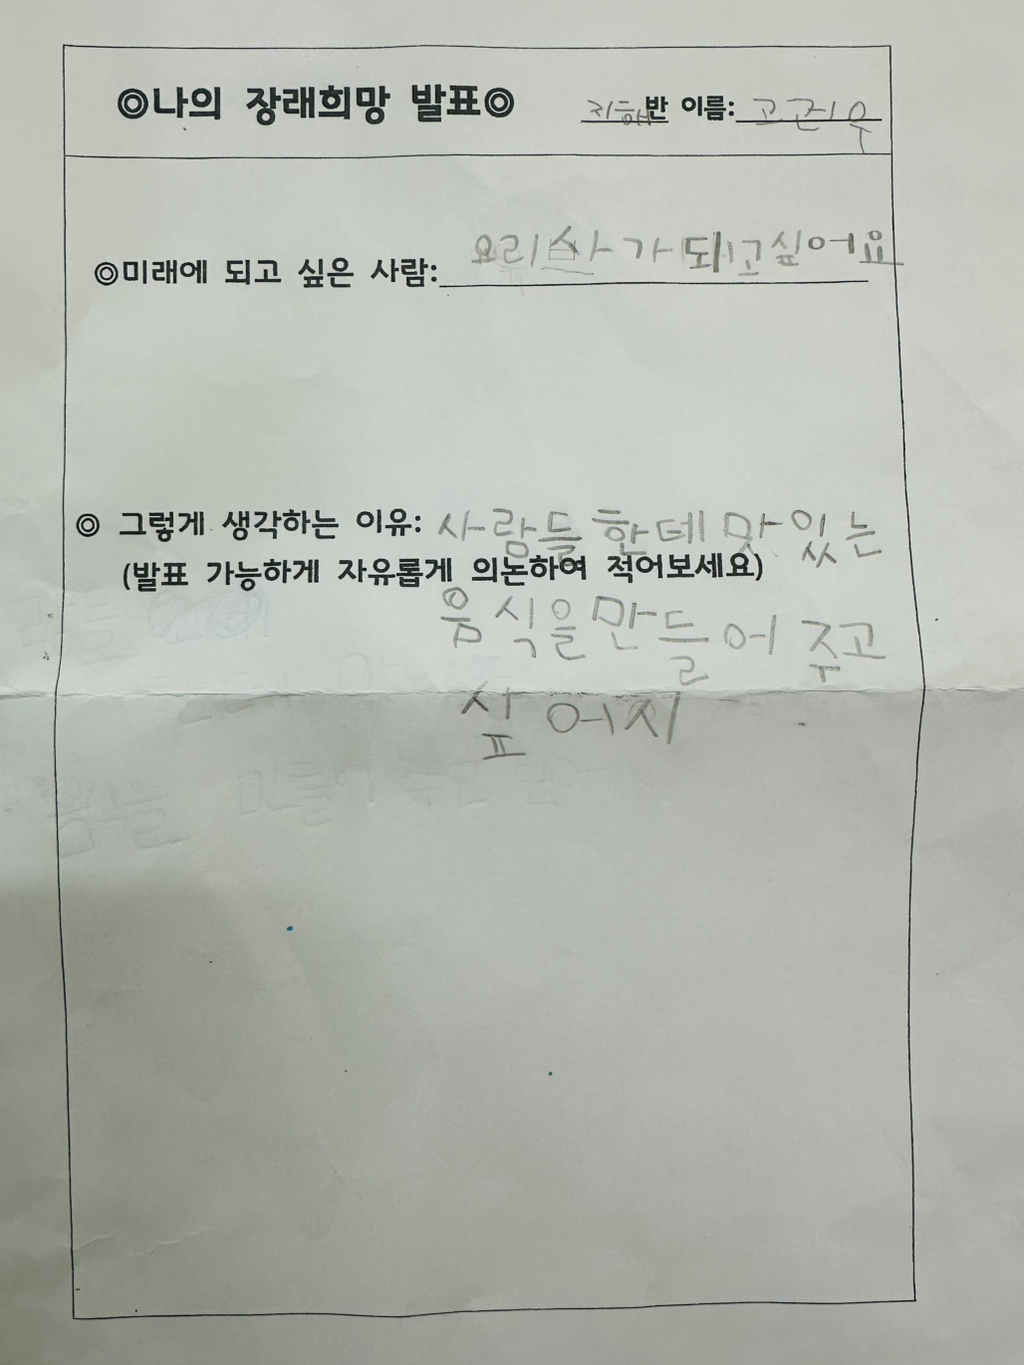 ◎나의 장래희망 발표◎ 지혜반 이름: 고근우
◎미래에 되고 싶은 사람: 요리사가 되고싶어요
◎ 그렇게 생각하는 이유: 사람들한테 맛있는
(발표 가능하게 자유롭게 의논하여 적어보세요)
음식을 만들어 주고
싶어서